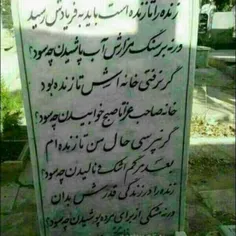 زنده را تا زنده است باید به فریادش رسید
ورنه بر سنگ مزارش آب پاشیدن چه سود؟
گر نرفتی خانه اش تا زنده بود
خانه صاحب عزا تا صبح خوابیدن چه سود؟
گر نپرسی حال من تا زنده ام
بعد مرگم اشک و نالیدن چه سود؟
زنده را در زندگی قدرش بدان
ورنه مشکی از برای مرده پوشیدن چه سود؟